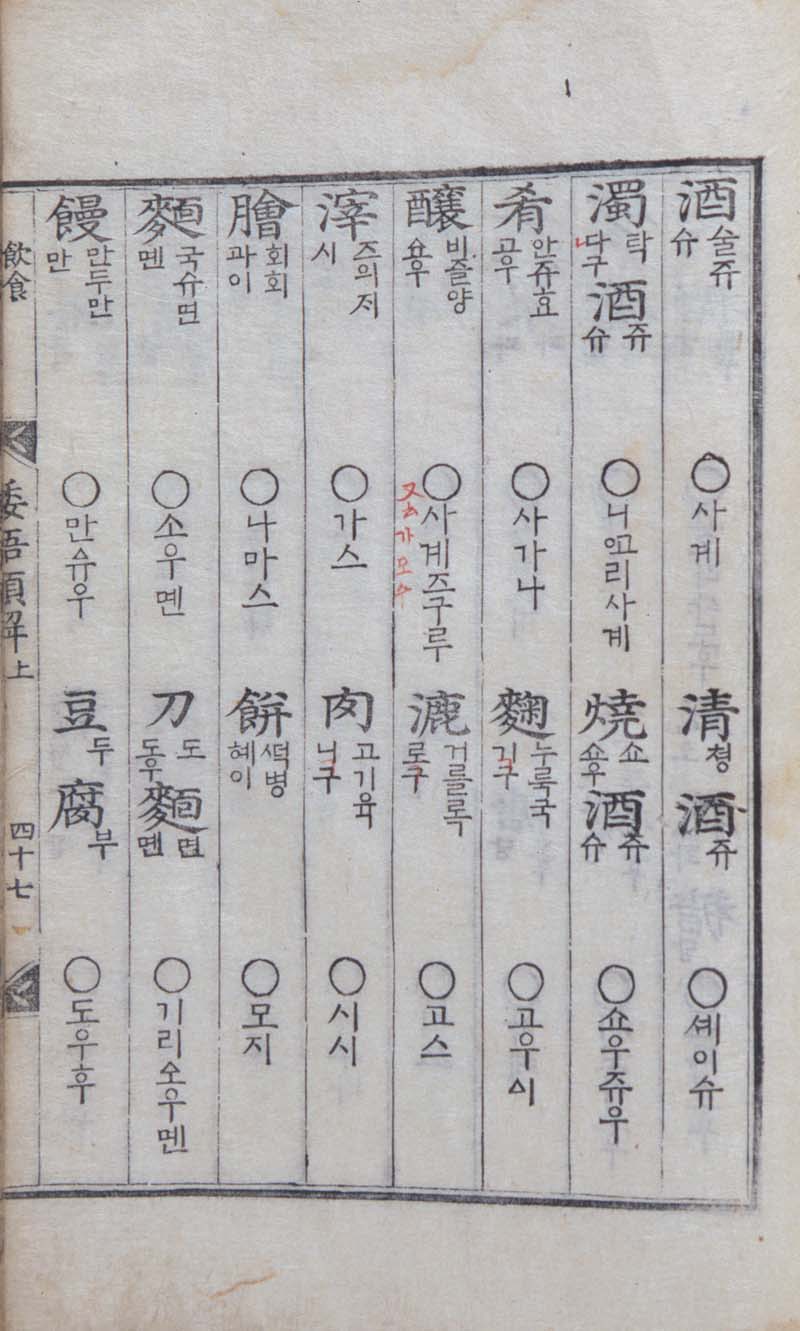 酒 술쥬 슈 ○사계 清 쳥 酒 쥬 ○셰이슈
濁 탁 다구 酒 쥬 슈 ○니ᅌᅩ리사계 燒 쇼 쇼우 酒 쥬 슈 ○쇼우쥬우
肴 안쥬효 고우 ○사가나 麴 누룩국 기구 ○고우ᅀᅵ
釀 비즐양 ᅀᅭ우 ○사계즈구루 漉 거를록 로구 ○고스
又 가모
滓 즈의저 시 ○가스 肉 고기육 니구 ○시시
膾 회회 과이 ○나마스 餠 ᄯᅥᆨ병 혜이 ○모지
麵 국슈면 멘 ○소우몐 刀 도 도우 麵 면 멘 ○기리소우멘
饅 만두만 만 ○만ᅀᅲ우 豆 두 腐 부 ○도우후
飮食 倭語類解 上 四十七